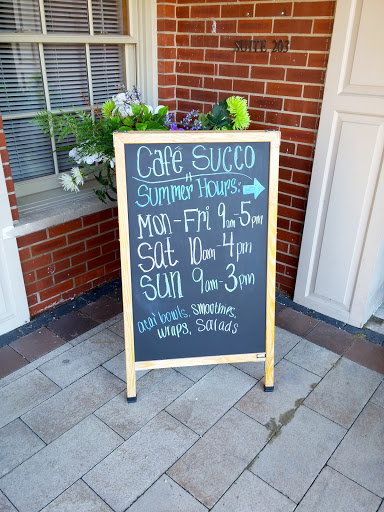 SUITE 203
Café SUCCO
Summer Hours:
MON-FRI 9am-5pm
SAT 10am-4pm
SUN 9am-3pm
acai bowls, smoothies,
wraps, salads